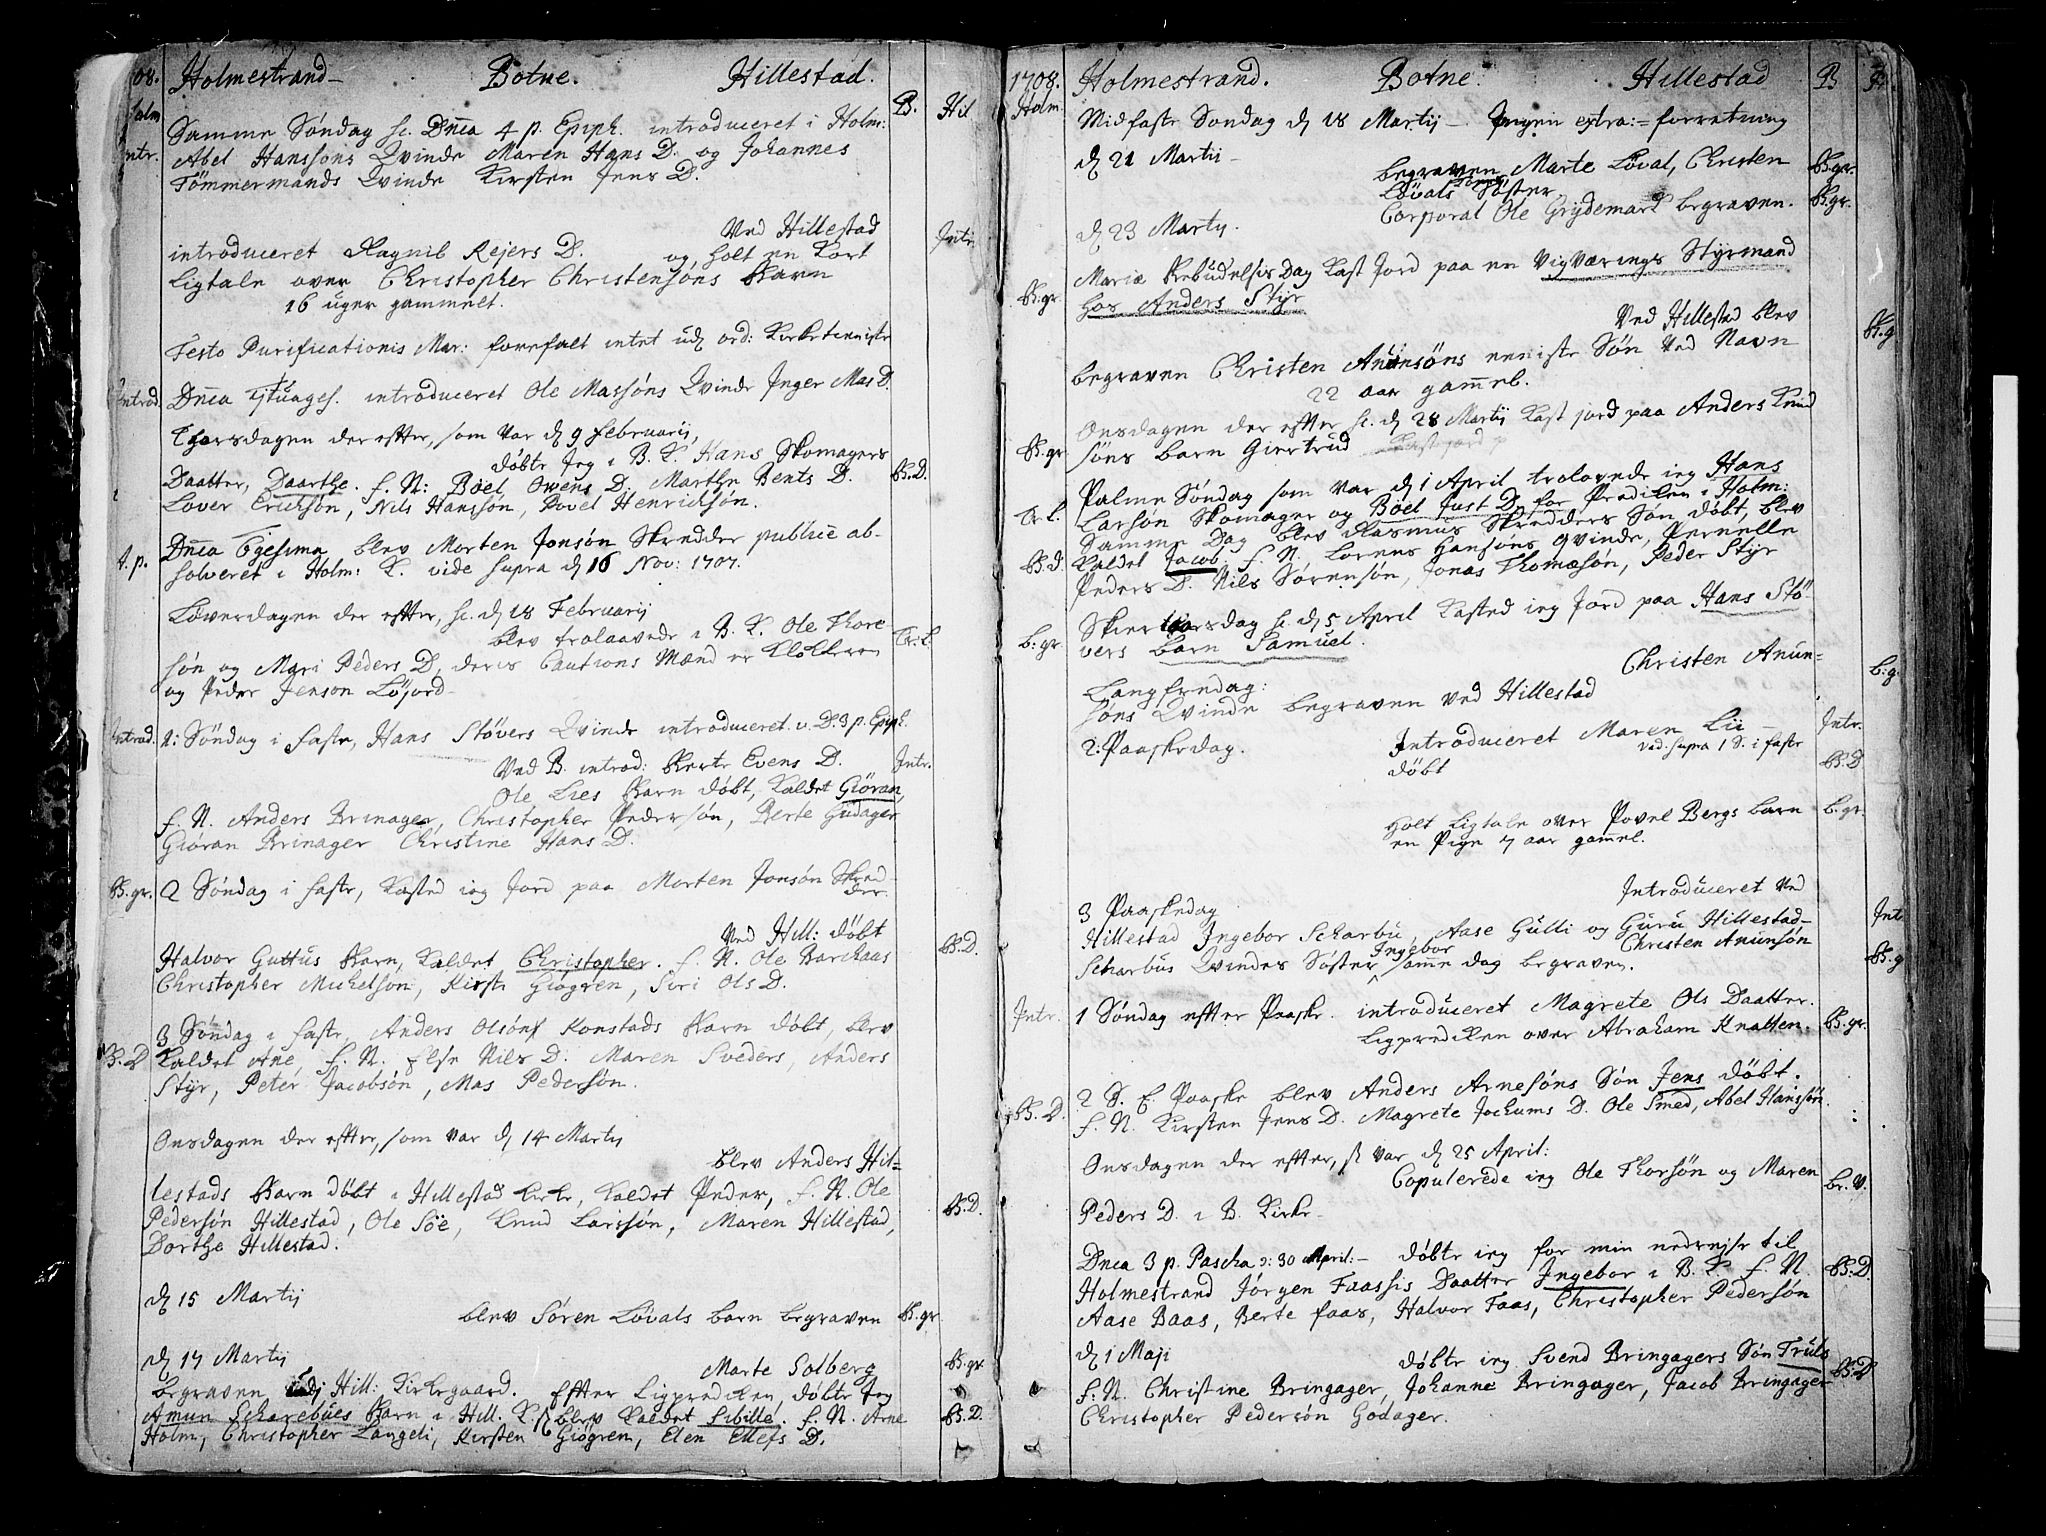 08. Holmestrand Botne. Hillestad.
Holm B. Hil
Samme Söndag sc. Dnica 4 p. Epiph. introduceret i Holm:
intr. Abel Hanssöns Qvinde Maren Hans D. og Johannes
Tömmermands Qvinde Kirsten Jens D.
Ved Hillestad
introduceret Ragnil Rejers D. og holt en Kort Intr.
Ligtale over Christopher Christensöns Barn
16 uger gammelt.
Festo Purificationis Mar: forefalt intet ud ord: Kirketieniste
Introd. Dnica 7tuages. introduceret Ole Massöns Qvinde Inger Mas D.
Thorsdagen der efter, som var d 9 Februarij,
döbte Jeg i B. K. Hans Skomagers
Daatter, Daarthe. f. N: Boel Owens D. Marthe Bents D. B.D.
Lover Ericksön, Nils Hanssön, Povel Henricksön.
Dnica Egesima blev Morten Jonsön Skredder publice ab-
A.p. solveret i Holm: K. vide supra d 16 Nov: 1707.
Löverdagen der efter, sc. d 18 Februarij
blev trolaavede i B. K. Ole Thore Tr:l.
søn og Mari Peders D. deris Cautions Mænd er Klokkeren
og Peder Jenson Löjord
Introd. 1: Söndag i faste, Hans Stövers Qvinde introduceret v. D. 3 p. Epiph.
Ved B. introd: Berte Evens D. Intr.
Ole Lies Barn döbt, Kaldet Giöran,
f. N. Anders Brinager, Christopher Pedersön, Berte Gudager
Giöran Brinager Christine Hans D.
B.gr. 2 Söndag i faste, Kasted ieg Jord paa Morten Jonsön Skred-
der.
Ved Hill: döbt
Halvor Guttus Barn, Kaldet Christopher. f. N. Ole Barchaas B.D.
Christopher Michelson, Kirsti Giögren, Siri Ols D.
3 Söndag i faste, Anders Olsöns Konstads Barn döbt, blev
B.D Kaldet Ane, f. N. Else Nils D. Maren Sveders, Anders
Styr, Peter Jacobsön, Mas Pedersön.
Onsdagen der efter, som var d 14 Martij
blev Anders Hil-
lestads Barn döbt i Hillestad Kirke, Kaldet Peder, f. N. Ole
Pedersön Hillestad, Ole Söe, Knud Larssön, Maren Hillestad, B.D.
Dorthe Hillestad.
d 15 Martij
blev Sören Lövals barn begraven B.gr
d 17 Martij Marte Solberg B.gr.
begraven ved Hill: Kirkegaard. Efter Ligpredicken döbte Jeg
Amun Scharebues Barn i Hill. K. blev Kaldet Sibille. f. N. Arne B.D.
Holm, Christopher Langeli, Kirsten Giögren, Elen Ellefs D.
1708. Holmestrand. Botne. Hillestad B
Holm.
Midfaste Sondag d 18 Martij Ingen extra:= forretning
d 21 Martij
begraven Marte Löval, Christen B.gr.
Lövals Söster
Corporal Ole Grydemark begraven. B.gr.
d 23 Martij.
Mariæ Bebudelsis Dag Kast Jord paa en Vigværings Styrmand
B.gr. hos Anders Styr
Ved Hillestad blev B.g
begraven Christen Anunsöns eeniste Sön ved Navn
22 aar gamel.
Onsdagen der efter sc. d 28 Martij Kast jord paa Anders Knud
B.gr söns barn Giertrud
Palme Söndag som var d 1 April trolovede ieg Hans
Tr l. Larsön Skomager og Böel Just D. for Prediken i Holm:
Samme Dag blev Rasmus Skredders Sön döbt, blev
B.d. Kaldet Jacob f. N. Lorens Hansöns qvinde, Pernelle
Peders D. Nils Sörensön, Jonas Thomæsön, Peder Styr
Skiertorsdag sc. d 5 April Kasted ieg Jord paa Hans Stö-
b:gr. vers barn Samuel.
Christen Anun- b:g.
Langfredag:
söns Qvinde begraven ved Hillestad
2: Paaskedag. Introduceret Maren Lii Intr.
vid. supra 1 S. i faste
döbt B.D
Holt Ligtale over Povel Bergs barn b.gr.
en Pige 7 aar gamel.
Introduceret ved
3 Paaskedag Int
Hillestad Ingebor Scharbu, Aase Gulli og Guru Hillestad
Christen Anunsön
Scharbus Qvindes Söster Ingebor samme dag begraven. B.g
Intr. 1 Söndag efter Paaske. introduceret Magrete Ols Daatter.
Ligprediken over Abraham Knatten. B.gr.
2 S. E. Paaske blev Anders Arnesöns Sön Jens döbt.
B.D. f. N. Kirsten Jens D. Magrete Jochums D. Ole Smed, Abel Hanssön.
Onsdagen der efter, s var d 25 April:
Copulerede ieg Ole Thorsön og Maren br.V.
Peders D. i B. Kirke
Dnica 3 p. Pascha ɔ: 30 April:- döbte ieg for min nedrejse til
Holmestrand Jörgen Faassis Daatter Ingebor i B. K. f. N. B.D.
Aase Baas, Berte faas, Halvor Faas, Christopher Pedersön
d 1 Maji döbte ieg Svend Bringagers Sön Truls B.D
f. N. Christine Bringager, Johanne Bringager, Jacob Bringager
Christopher Pedersön Godager.